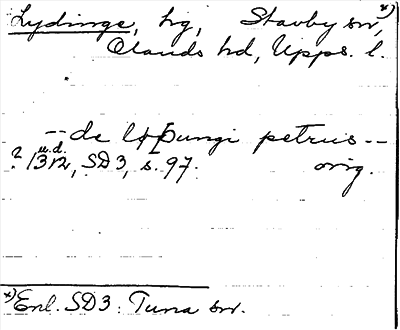 Lydinge, hg, Stavby sn, *)
Olands hd, Upps. l.
-- de petrus --
? 1312, u.d. SD3, s. 97. orig.
*) Enl. SD3: Tuna sn.